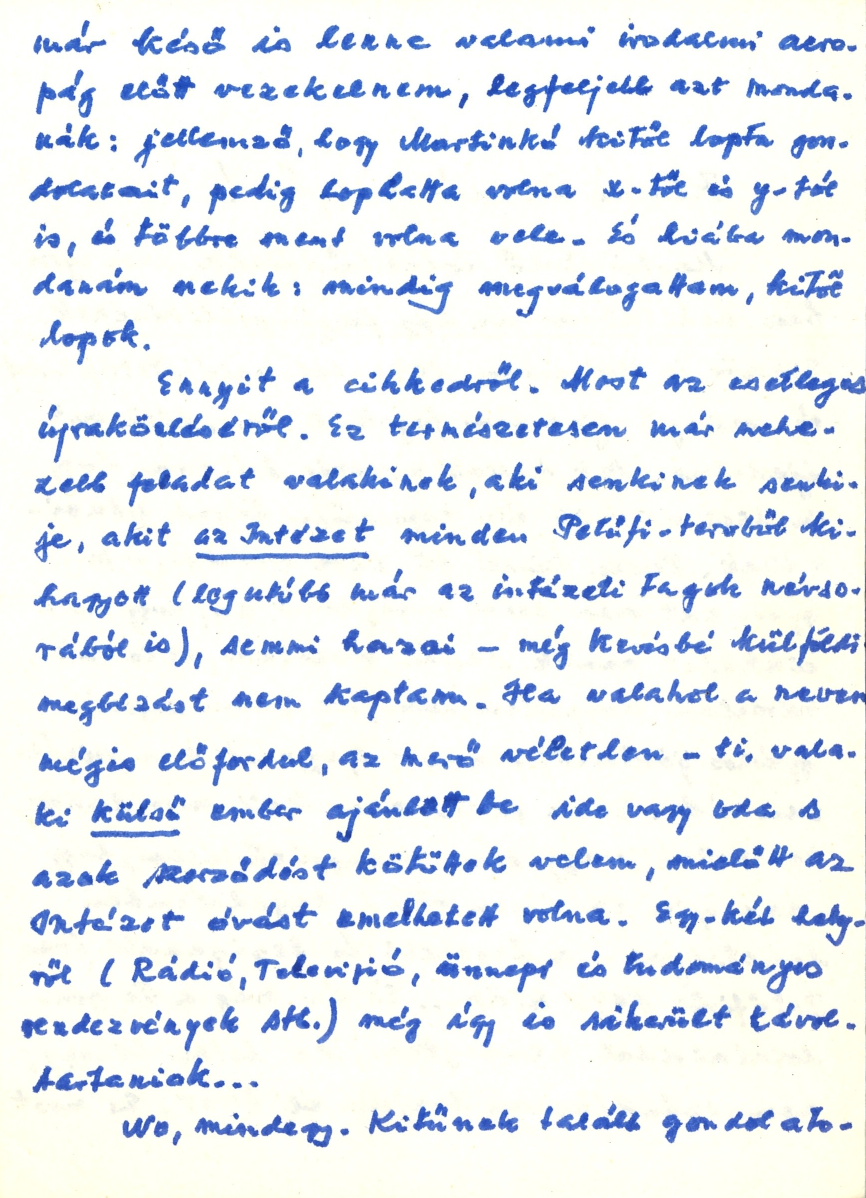 már késő is lenne valami irodalmi aero-
pág előtt vezekelnem, legfeljebb azt monda-
nák: jellemző, hogy Martinkó kitől lopta gon-
dolatait, pedig lophatta volna x-től és y-tól
is, és többre ment volna vele. És hiába mon-
danám nekik: mindig megválogattam, kitől
lopok.
Ennyit a cikkedről. Most az esetleges
újraközléséről. Ez természetesen már nehe-
zebb feladat valakinek, aki senkinek senki-
je, akit az Intézet minden Petőfi-tervből ki-
hagyott (legutóbb már az intézeti tagok névso-
rából is), semmi hazai – még kevésbé külföldi
megbízást nem kaptam. Ha valahol a nevem
mégis előfordul, az merő véletlen – ti. vala-
ki külső ember ajánlott be ide vagy oda s
azok szerződést kötöttek velem, mielőtt az
Intézet óvást emelhetett volna. Egy-két hely-
ről (Rádió, Televízió, ünnepi és tudományos
rendezvények stb.) még így is sikerült távol-
tartaniok...
No, mindegy. Kitűnek talált gondolato-